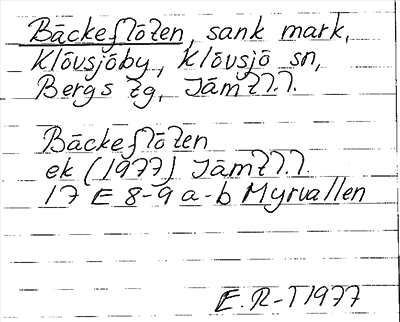 Bäckeflöten, sank mark,
Klövsjöby, Klövsjö sn,
Bergs tg, Jämtl.l.
Bäckeflöten
ek (1977) Jämtl.l.
17 E 8-9 a-b Myrvallen
E.R-T 1977